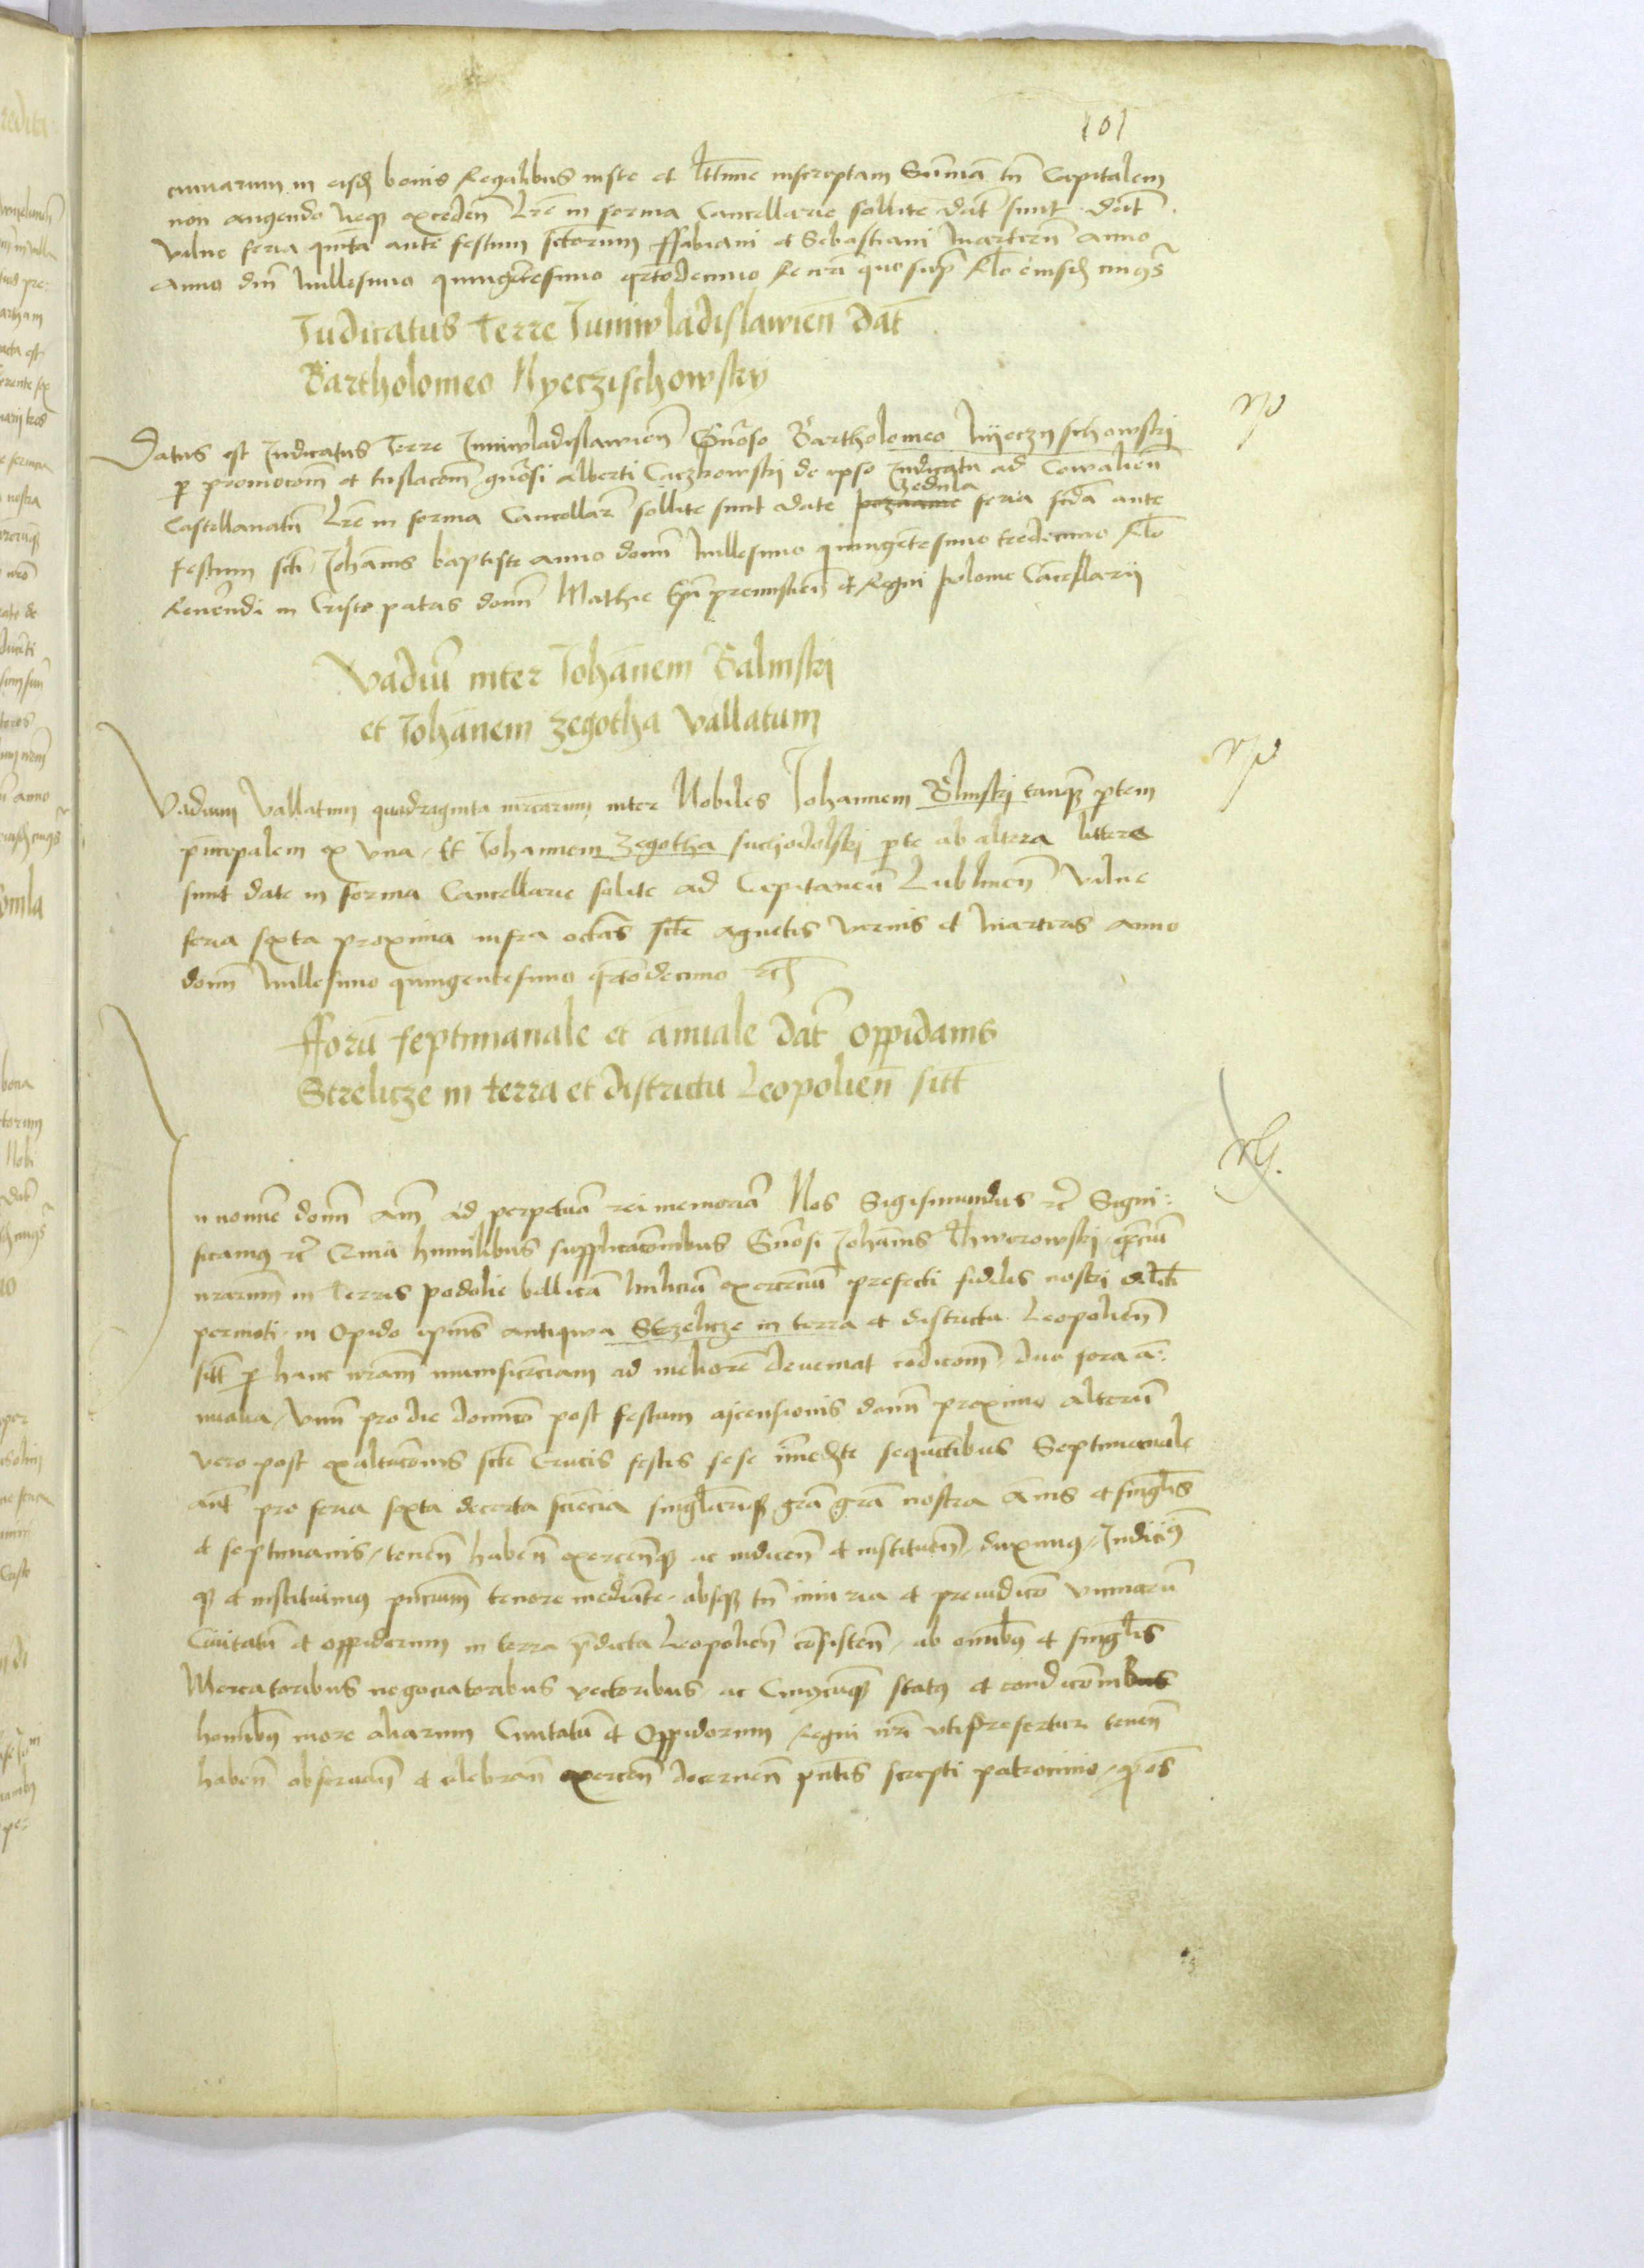 101
cunarum in eisd bonis Regalibus iuste et lttime inscriptam Sumã tñ Capitalem
non augendo neqz exceden Lre in forma Cancellarie sollite dat sunt dat
Vilne feria quita ante festum sctorum ffabiani et Sebastiani Martirũ Anno
Anno dni Millesimo quingetesimo qrtodecimo Re nri quo sup Rlo eiusd mgs
Iudicatus Terre Iuniwladislawien dat
Bartholomeo Nyeczischowsky
Datus est Iudicatus Terre Iuniwladislawien Gnoso Bartholomeo Nyeczyschowski
p promocom et tnslacom gnosi Alberti Caczkowski de ipso Iudicatu ad Cowalien
Cedula
Castellanatũ Lre in forma Cancellar sollite sunt date feria scda ante
festum scti Iohanis baptiste anno domi Millesimo quingetesimo tredecimo Rlo
Reuerendi in Cristo patris domi Mathie Epi premislien et Regni polonie Cancellarii
Vadiũ inter Iohãnem Balinski
et Iohãnem Zegotha Vallatum
Vadium Vallatum quadraginta mrcarum inter Nobiles Iohannem Blinski tanqz ptem
pncipalem ex Vna, Et Iohannem Zegotha suchodolski pte ab altera littere
sunt date in forma Cancellarie solite ad Capitaneũ Lublinen Vilne
feria sexta proxima infra octas scte Agnetis virnis et Martiris Anno
domi Millesimo quingentesimo qrtodecimo etc
fforũ septimanale et ãnuale dat oppidanis
Strelicze in terra et districtu Leopolien sitt
n nomie domi Am Ad perpetuã rei memoriã Nos Sigismundus etc Signi:
ficamus etc Qma humilibus supplicacõnibus Gnosi Iohãnis Thworowski gẽciũ
nrarum in Terris podolie bellicã Miliciã exercenciũ prefecti fidelis nostri dilcti
permoti in Opido ipius antiqua Strzelicze in terra et districtu Leopolien
sitt p hanc nram munificenciam ad meliorẽ deueniat codicom, duo fora ã:
nualia, Vnũ pro die domico post festum ascensionis domi proximo Alterũ
vero post exaltacõnis scte Crucis festis sese imedte sequetibus Septimanale
aut pro feria sexta de certa sciẽcia singlarisqz gra nostra Anis et singlis
et septimanis, tenen haben exercenqz ac indicen et instituen, duximus, Indicimus
qz et instituimus pntium tenore mediate, absqz tñ iniuria et preiudicio vicinarũ
Ciuitatũ et oppidorum in terra pdicta Leopolien cõsisten, ab omibus et singlis
Mercatoribus negociatoribus vectoribus, ac Cuiuscunqz status et condicionibus
homibus more aliarum Ciuitatũ et Oppidorum Regni nri vti prefertur tenen
haben obseruan et celebran exercen decernen pntis scripti patrocinio, p os